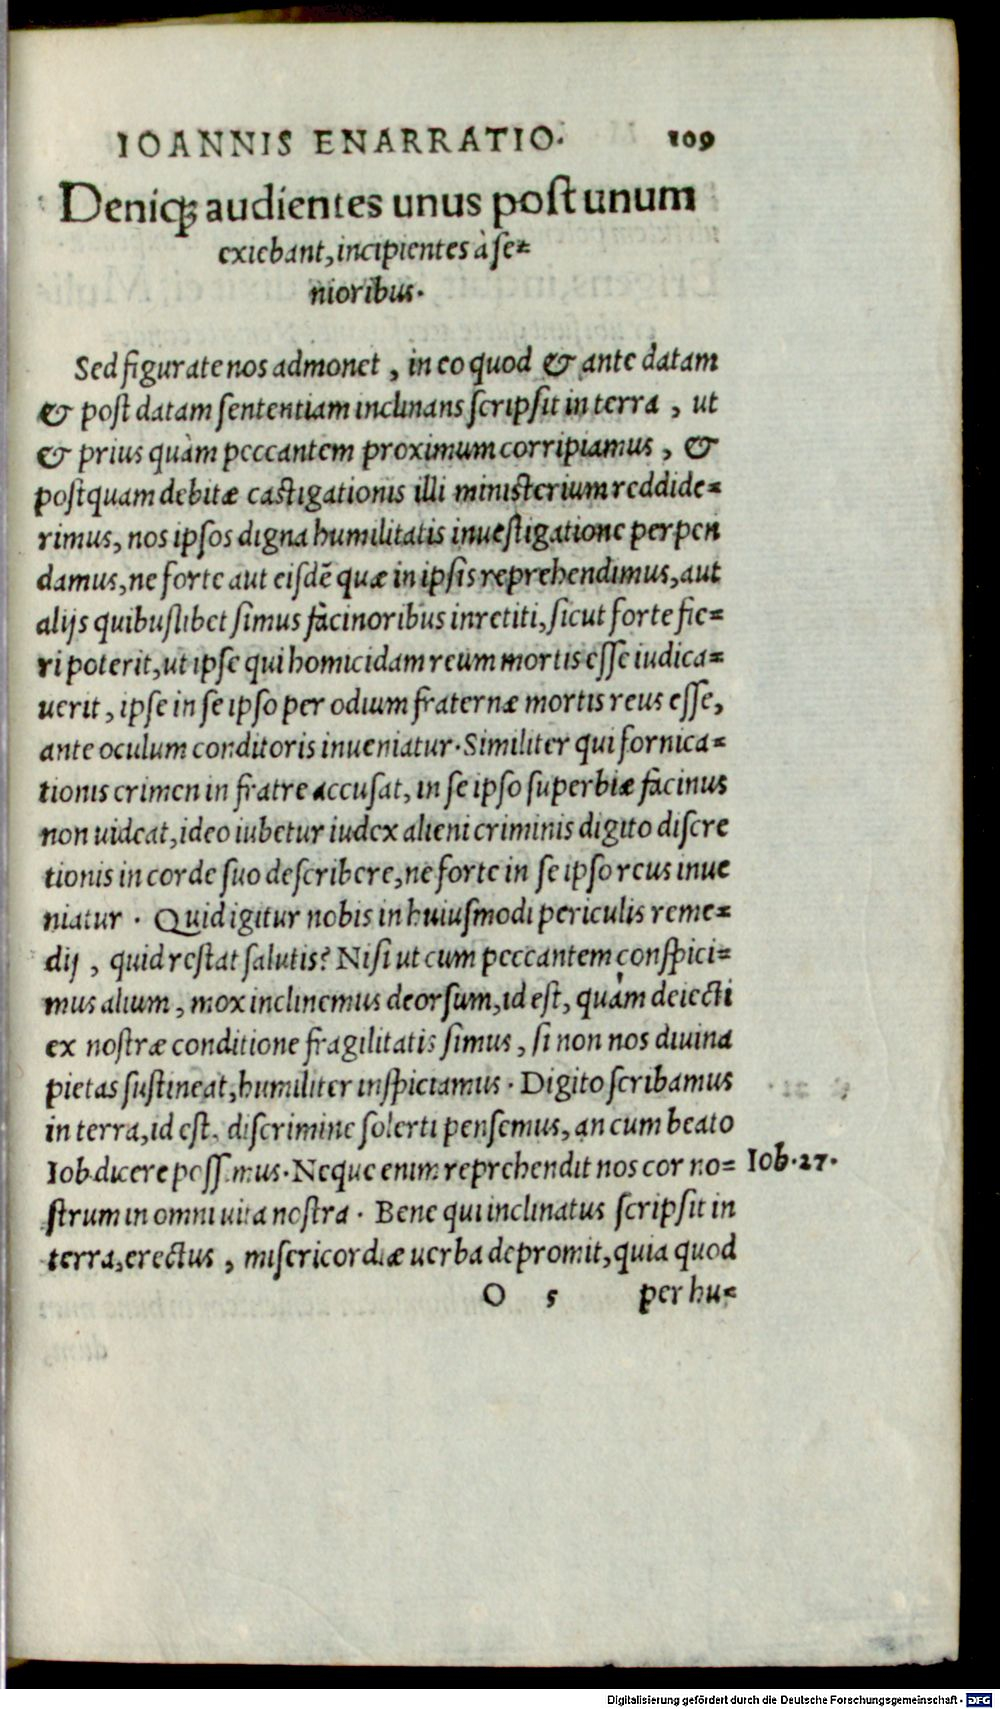 IOANNIS ENARRATIO. 109
Deniq; audientes unus post unum
exiebant, incipientes à se=
nioribus.
Sed figurate nos admonet, in eo quod & ante datam
& post datam sententiam inclinans scripsit in terra, ut
& prius quàm peccantem proximum corripiamus, &
postquam debitæ castigationis illi ministerium reddide=
rimus, nos ipsos digna humilitatis inuestigatione perpen
damus, ne forte aut eisdē quæ in ipsis reprehendimus, aut
alijs quibuslibet simus facinoribus inretiti, sicut forte fie=
ri poterit, ut ipse qui homicidam reum mortis esse iudica=
uerit, ipse in se ipso per odium fraternæ mortis reus esse,
ante oculum conditoris inueniatur. Similiter qui fornica=
tionis crimen in fratre accusat, in se ipso superbiæ facinus
non uideat, ideo iubetur iudex alieni criminis digito discre
tionis in corde suo describere, ne forte in se ipso reus inue
niatur. Quid igitur nobis in huiusmodi periculis reme=
dij, quid restat salutis? Nisi ut cum peccantem conspici=
mus alium, mox inclinemus deorsum, id est, quàm deiecti
ex nostræ conditione fragilitatis simus, si non nos diuina
pietas sustineat, humiliter inspiciamus. Digito scribamus
in terra, id est, discrimine solerti pensemus, an cum beato
Iob dicere possimus. Neque enim reprehendit nos cor no= Iob. 27.
strum in omni uita nostra. Bene qui inclinatus scripsit in
terra, erectus, misericordiæ uerba depromit, quia quod
O 5 per hu=
Digitalisierung gefördert durch die Deutsche Forschungsgemeinschaft - DFG